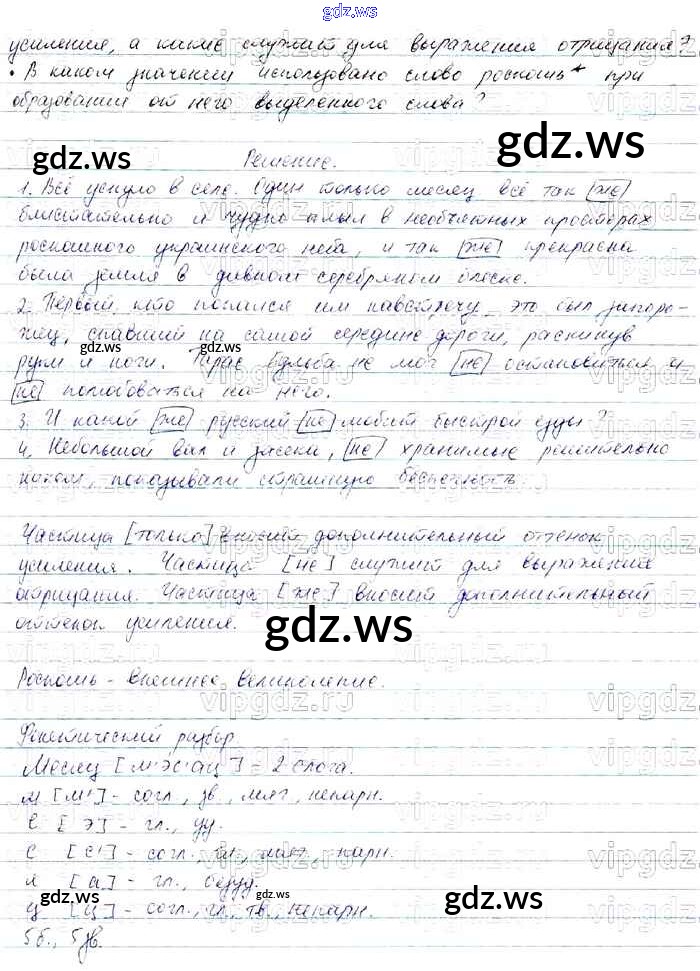 gdz.ws
усиления, а какие служит для выражения отрицания?
• В каком значении использовано слово роскошь* при
образовании от него выделенного слова?
gdz.ws
gdz.ws
Решение.
1. Всё уснуло в селе. Один только месяц всё так [же]
блистательно и чудно плыл в необъятных просторах
роскошного украинского неба, и так [же] прекрасна
была земля в дивном серебряном блеске.
2. Первый, кто попался им навстречу, это был запоро-
жец, спавший на самой середине дороги, раскинув
gdz.ws
gdz.ws
руки и ноги. Тарас Бульба не мог [не] остановиться и
[не] полюбоваться на него.
3. И какой [же] русский [не] любит быстрой езды?
4. Небольшой вал и засека, [не] хранимые решительно
никем, показывали страшную беспечность.
Частица [только] вносит дополнительный оттенок
усиления. Частица [не] служит для выражения
отрицания. Частица [же] вносит дополнительный
оттенок усиления.
gdz.ws
Роскошь - внешнее великолепие.
Фонетический разбор
Месяц [м'эс'ац] - 2 слога.
м [м'] - согл., зв., мяг., непарн.
е [э] - гл., уд.
с [с'] - согл., гл., мяг., парн.
я [а] - гл., безуд.
gdz.ws
gdz.ws
ц [ц] - согл., гл., тв., непарн.
5 б., 5 зв.
gdz.ws
vipgdz.ru